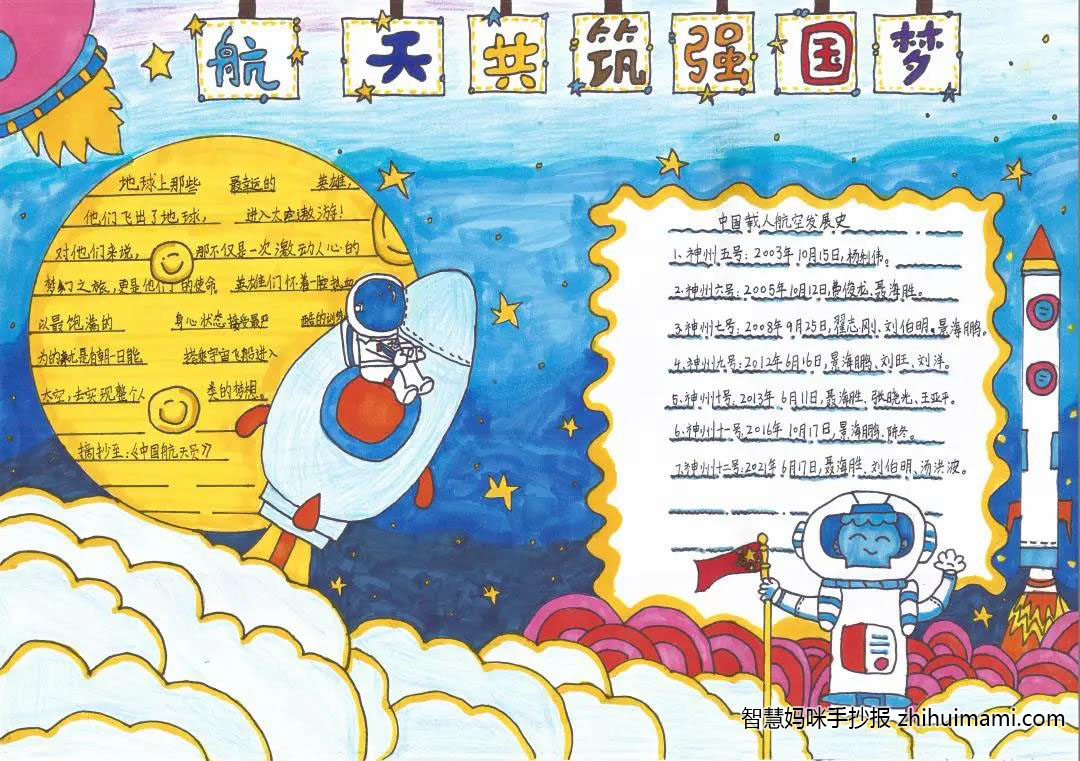 航天共筑强国梦
地球上那些 最幸运的 英雄,
他们飞出了地球, 进入太空遨游!
对他们来说, 那不仅是一次激动人心的
梦幻之旅,更是他们的使命 英雄们怀着一腔热血
以最饱满的 身心状态接受最严 酷的训练
为的就是有朝一日能 搭乘宇宙飞船进入
太空,去实现整个人 类的梦想。
摘抄至:《中国航天员》
中国载人航空发展史
1、神州五号:2003年10月15日,杨利伟。
2、神州六号:2005年10月12日,费俊龙、聂海胜。
3、神州七号:2008年9月25日,翟志刚、刘伯明、景海鹏。
4、神州九号:2012年6月16日,景海鹏、刘旺、刘洋。
5、神州十号、2013年6月11日,聂海胜、张晓光、王亚平。
6、神州十一号,2016年10月17日,景海鹏、陈冬。
7、神州十二号:2021年6月17日,聂海胜、刘伯明、汤洪波。
智慧妈咪手抄报 zhihuimami.com